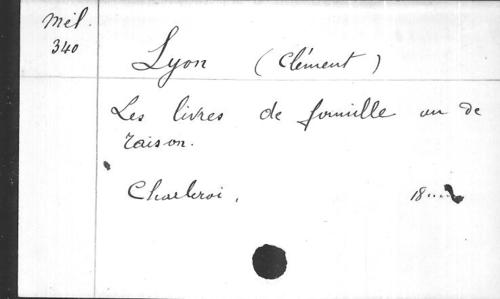 Mél.
340
Lyon (Clément)
Les livres de famille ou de
raison.
Charleroi, 18....